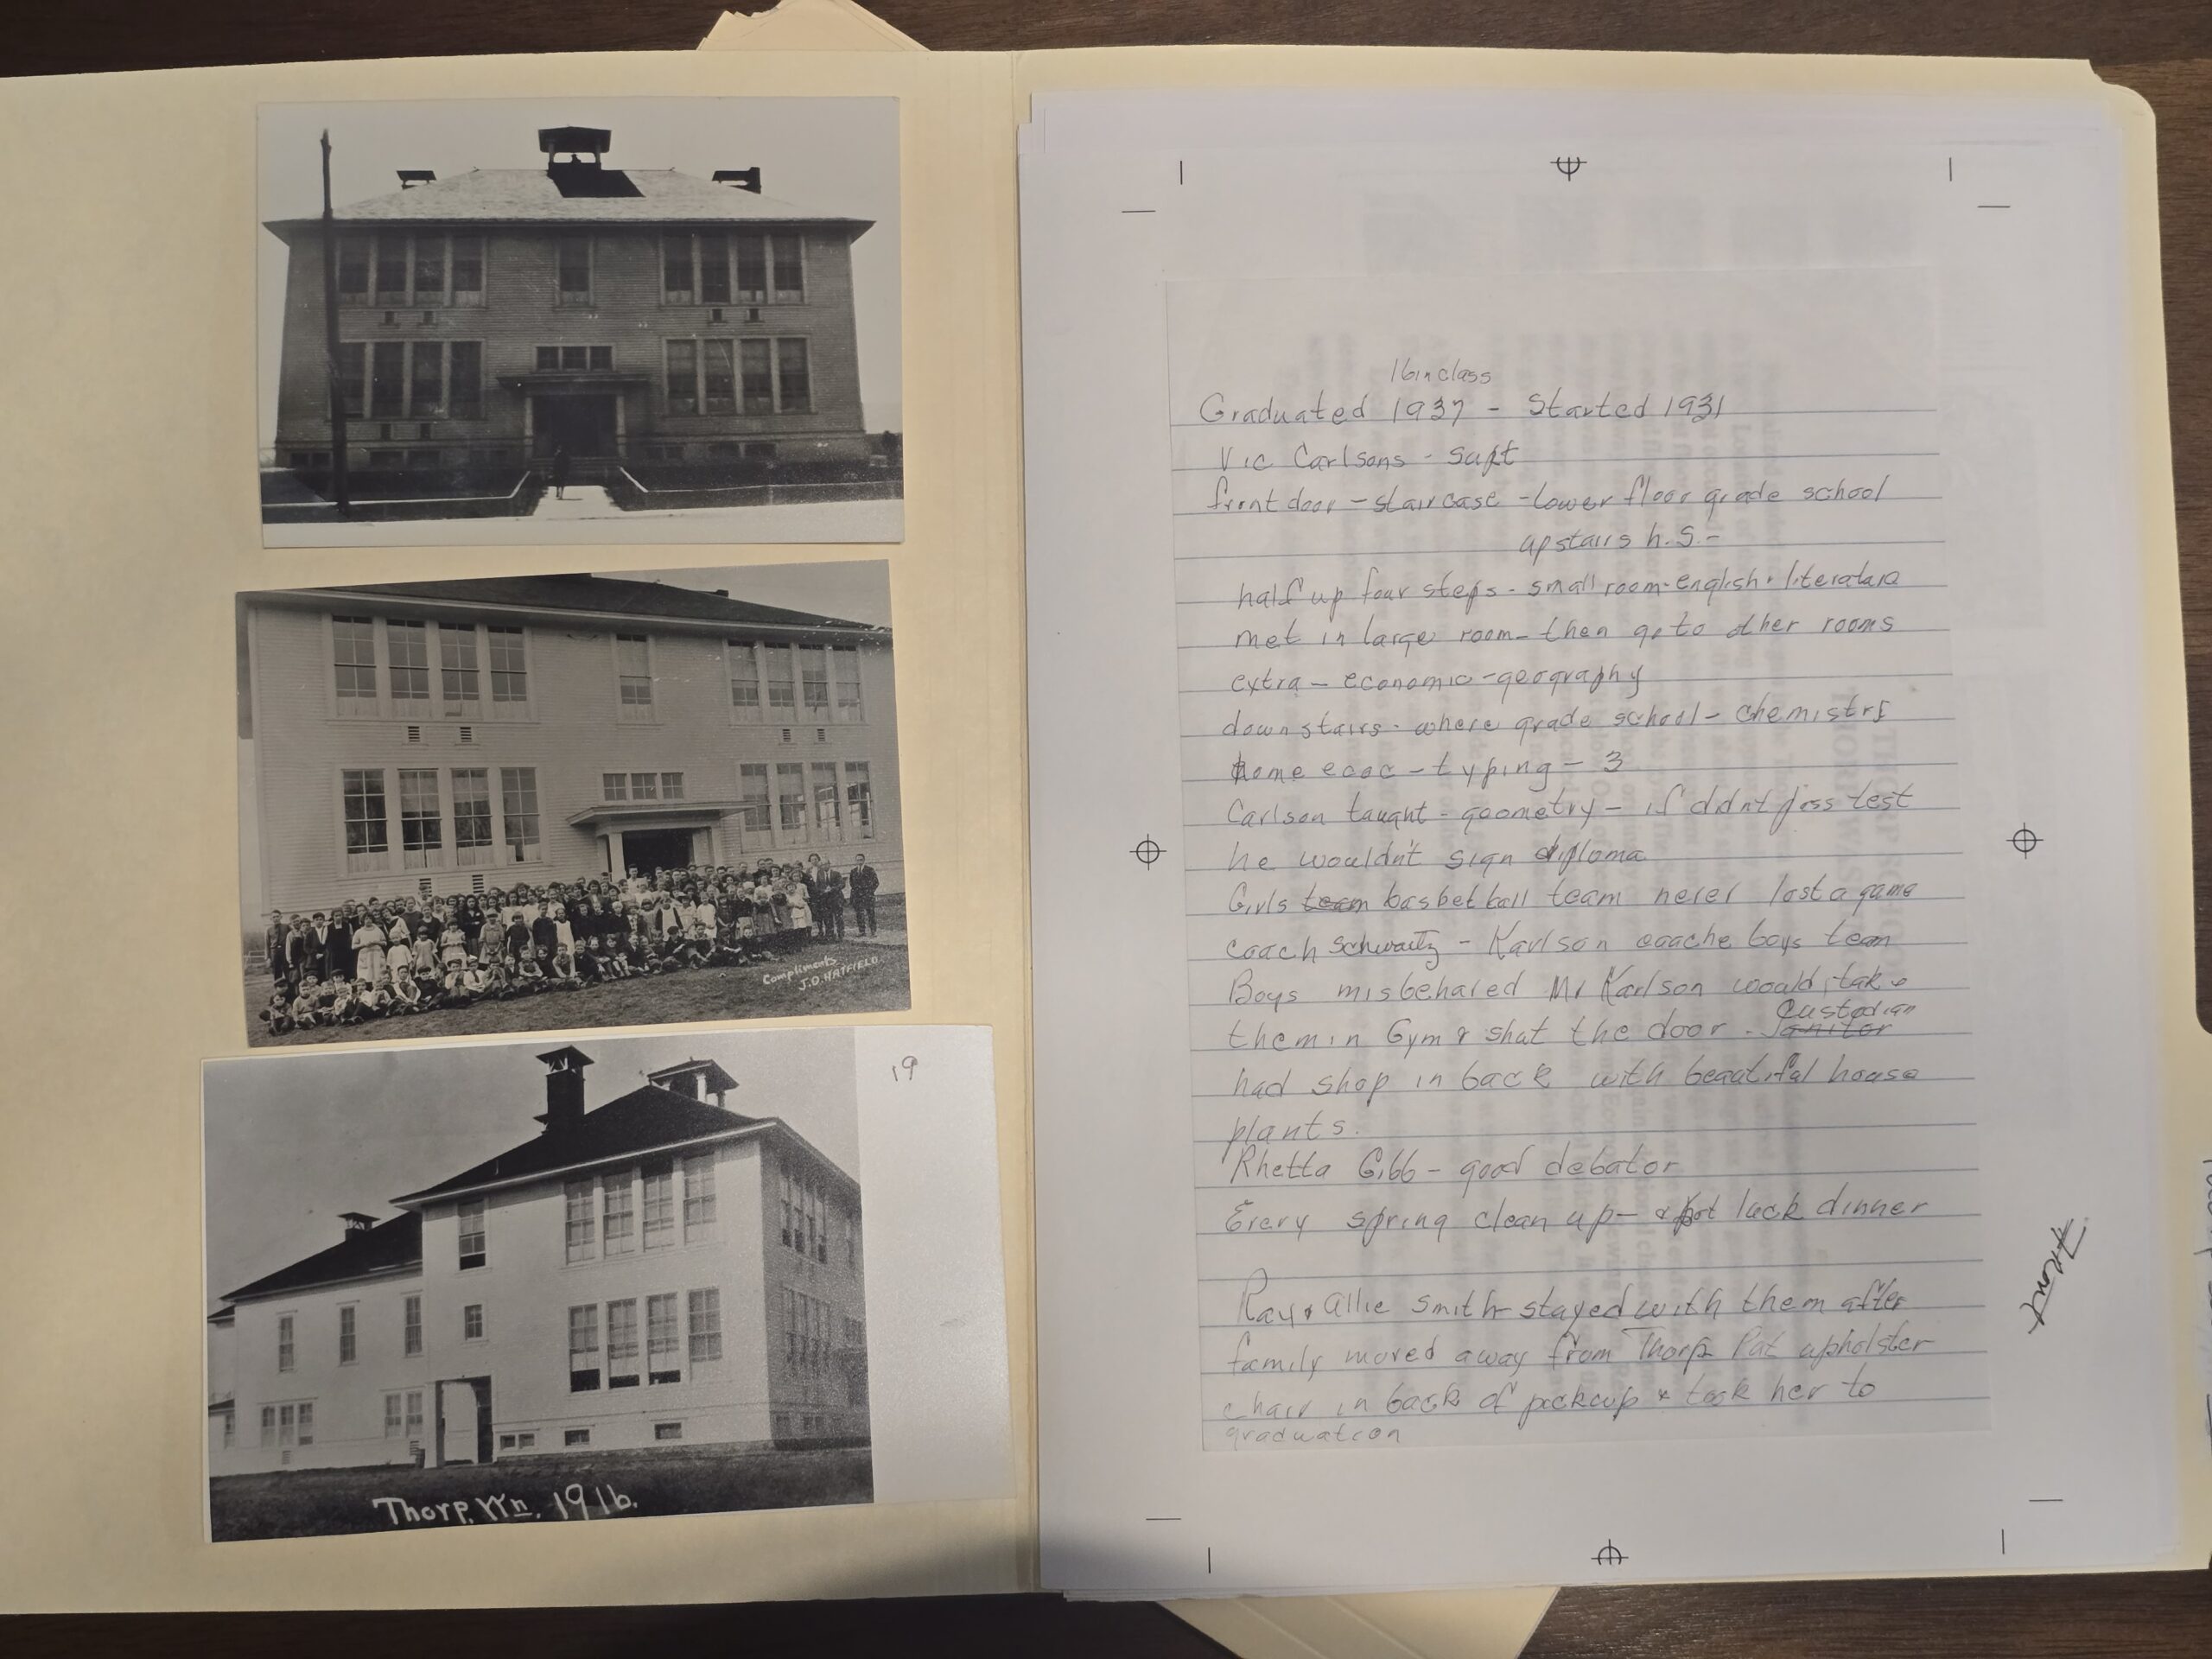 Compliments
J.D. HATFIELD
19
Thorp, Wn. 1916.
16 in class
Graduated 1937 - Started 1931
Vic Carlsons - Supt
front door - staircase - lower floor grade school
upstairs h.s. -
half up four steps - small room - english & literature
met in large room - then go to other rooms
extra - economic - geography
down stairs - where grade school - chemistry
home ecoc - typing - 3
Carlson taught - geometry - if didnt pass test
he wouldn't sign diploma
Girls team basbet ball team never lost a game
coach Schwartz - Karlson coache boys team
Boys misbehaved Mr Karlson would take
them in Gym & shut the door - Janitor Custodian
had shop in back with beautiful house
plants.
Rhetta Gibb - good debator
Every spring clean up - & pot luck dinner
Ray & Allie Smith - stayed with them after
family moved away from Thorp Pat upholster
chair in back of pickup & took her to
graduation